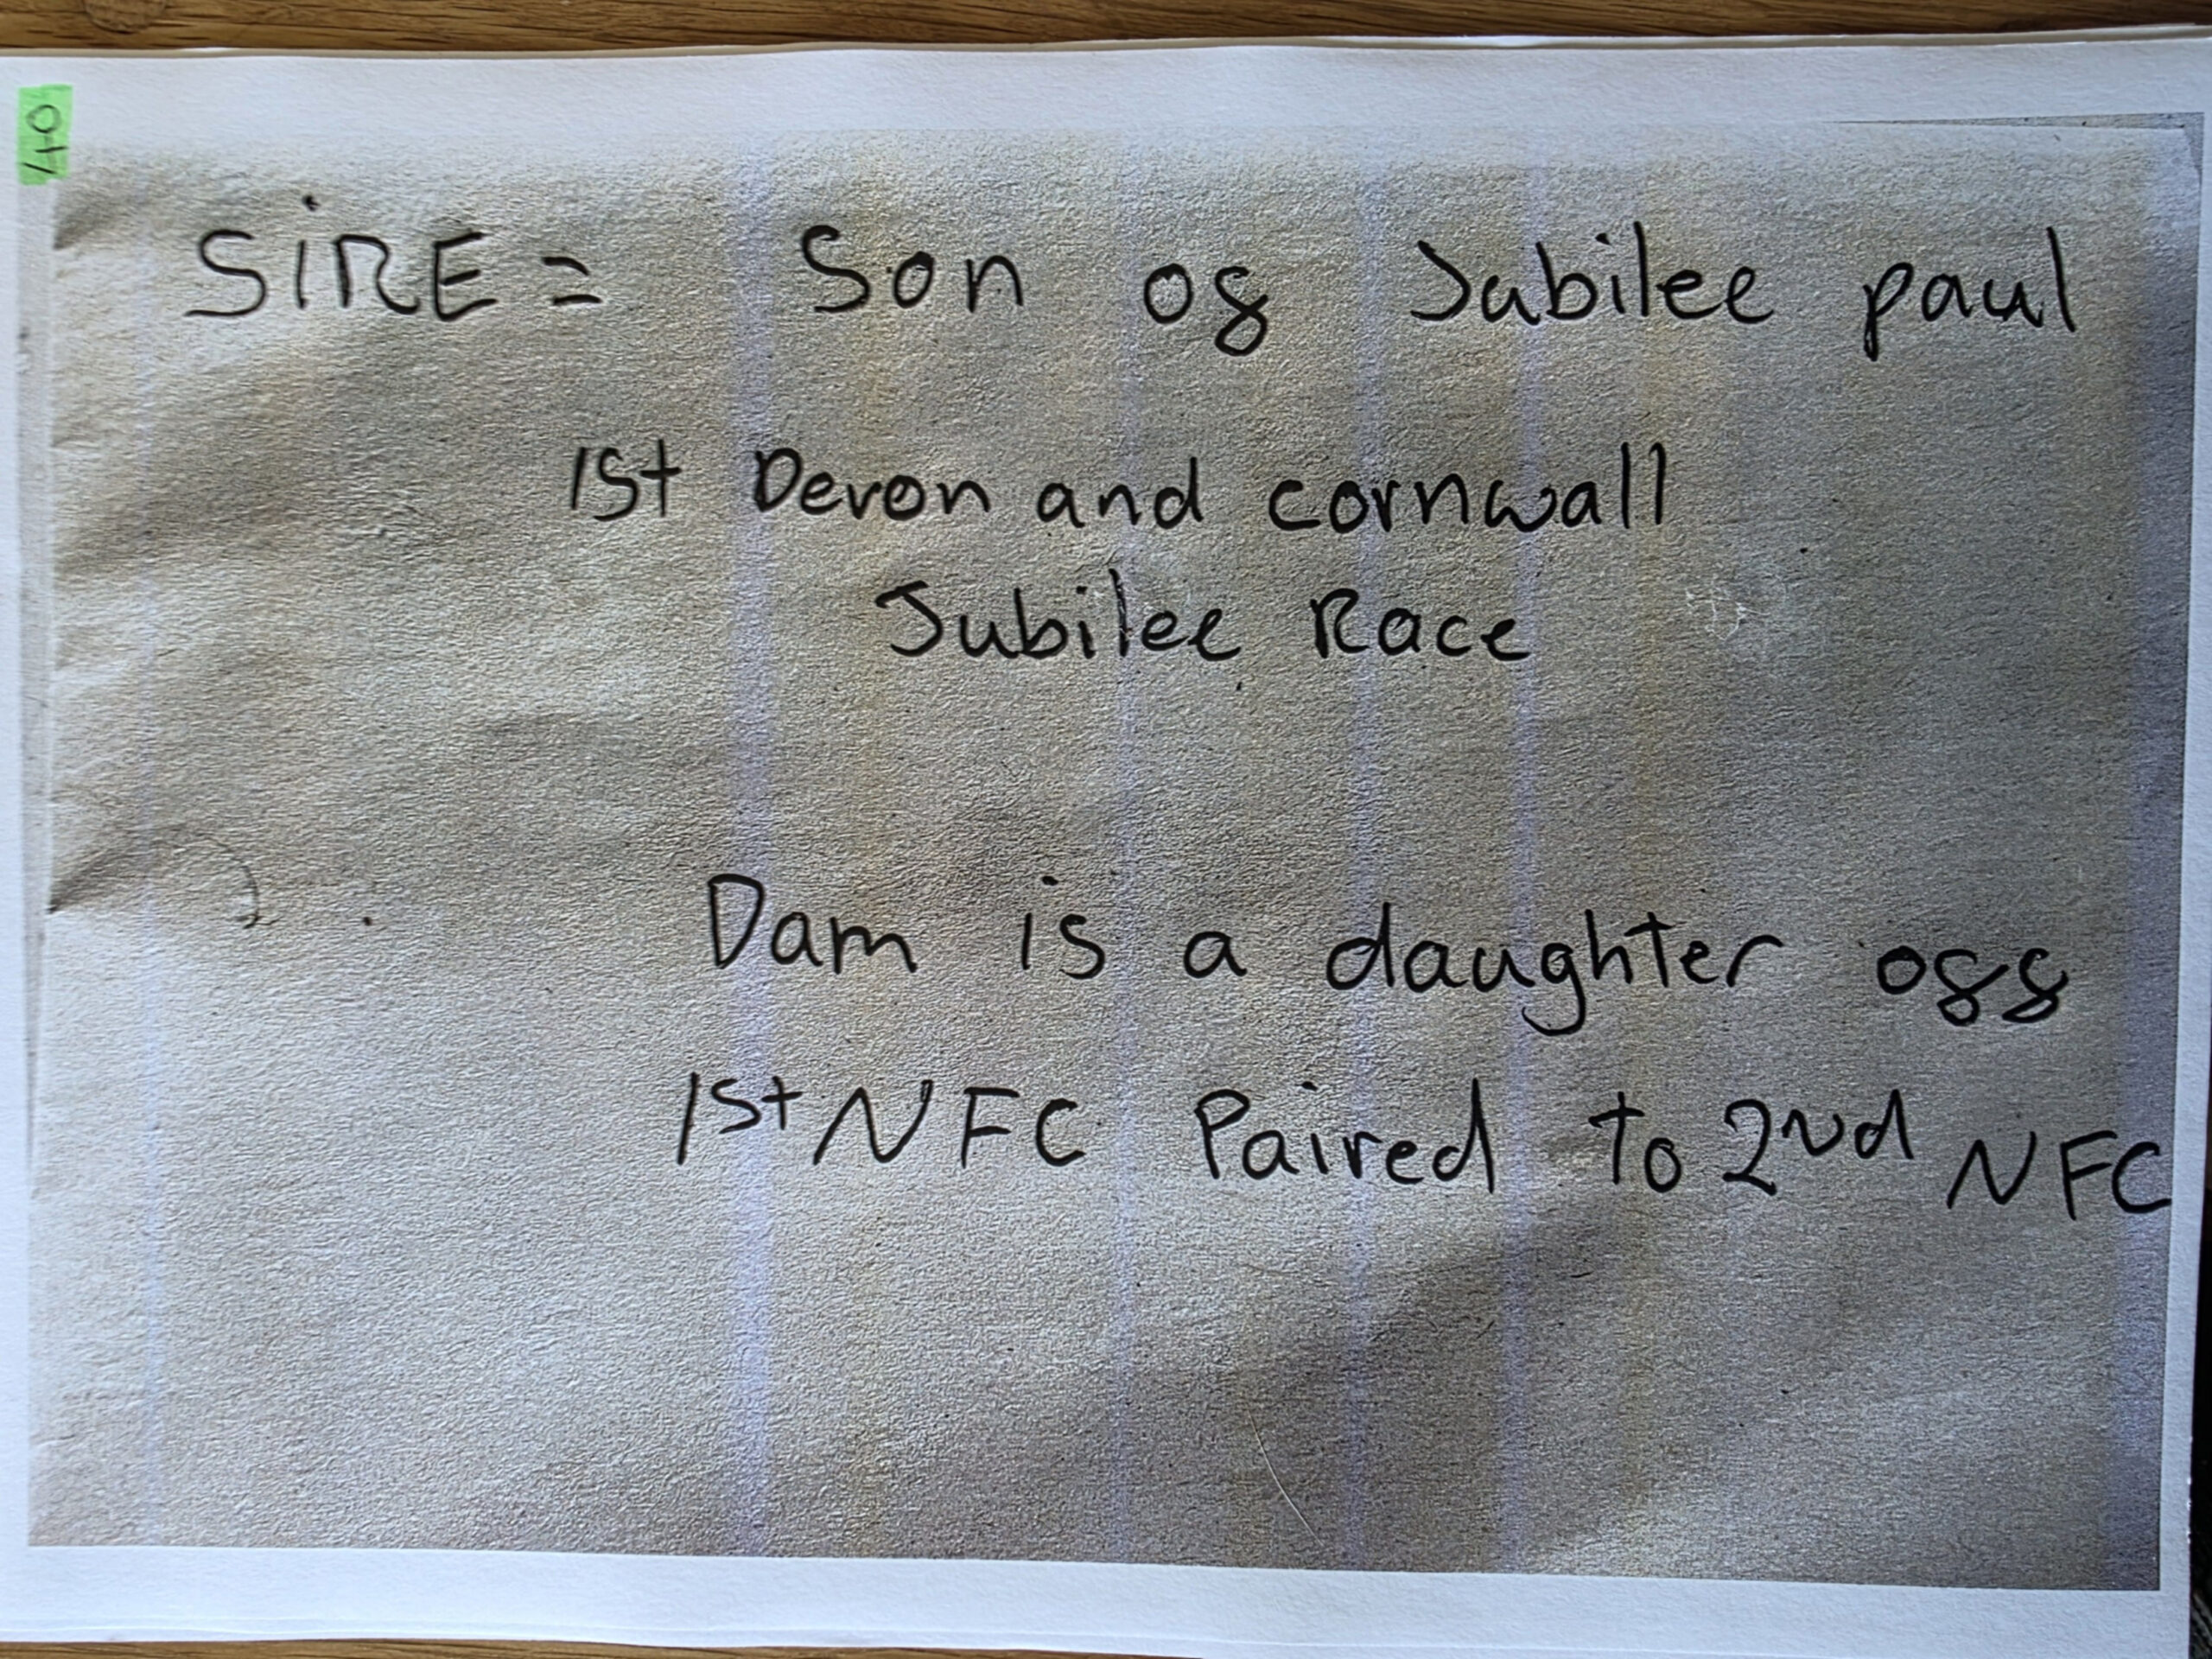 40
SiRE = Son of Jubilee paul
1st Devon and cornwall
Jubilee Race
Dam is a daughter off
1st NFC Paired to 2nd NFC